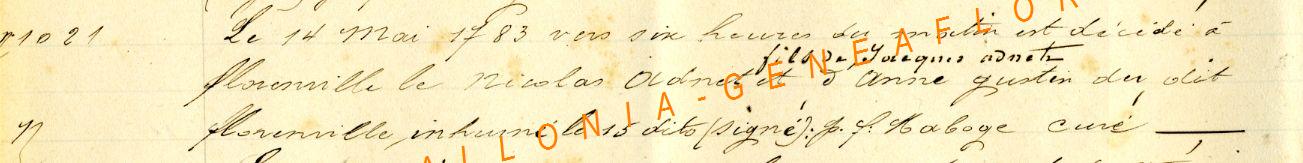 n° 1021 Le 14 Mai 1783 vers six heures du matin est décédé à
fils de Jacques adnet
florenville le nicolas adnet et d'anne gustin du dit
florenville, inhumé le 15 dito (signé): p. f. Maboge curé
WALLONIA-GENEAFLOR